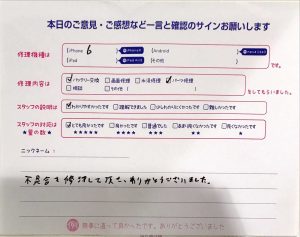 本日のご意見・ご感想など一言と確認のサインお願いします
修理機種は
iPhone 6
Android
iPad
その他
です。
修理内容は
バッテリー交換 画面修理 水没修理 パーツ修理
相談 その他
としてもらいました。
スタッフの説明は
わかりやすかったです 理解できました 難しかったです
スタッフの対応は
とても良かったです 良かったです 普通でした 良くなかったです
★星の数★
★★★★★ ★★★★ ★★★ ★★ ★
ニックネーム:
不具合を修理して頂き、ありがとうございました。
無事に直って良かったです。ありがとうございました